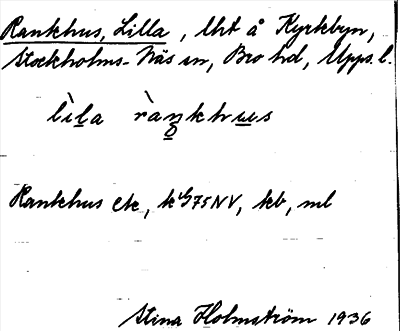 Rankhus, Lilla, lht å Kyrkbyn,
Stockholms-Näs sn, Bro hd, Upps. l.
lìla ràŋkhus
Rankhus etc, kb, ml
Stina Holmström 1936